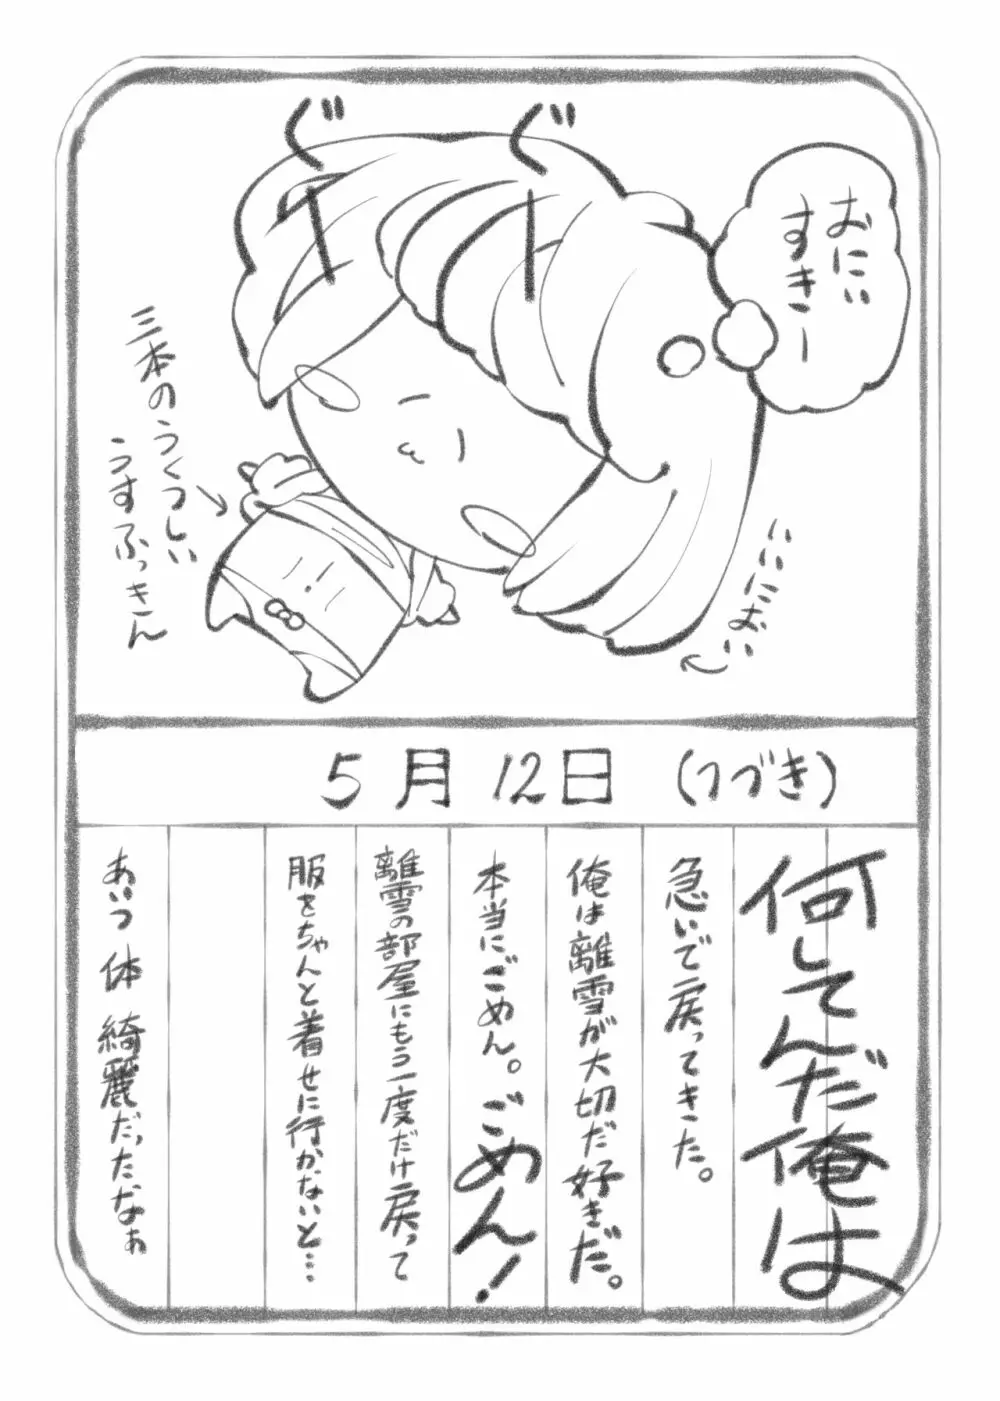 ぐー
ぐー
おにい
すきー
三本のうくつしい
うすふっきん
いいにおい
5月12日(つづき)
何してんだ俺は
急いで戻ってきた。
俺は離雪が大切だ好きだ。
本当にごめん。ごめん!
離雪の部屋にもう一度だけ戻って
服をちゃんと着せに行かないと…
あいつ 体 綺麗だったなぁ